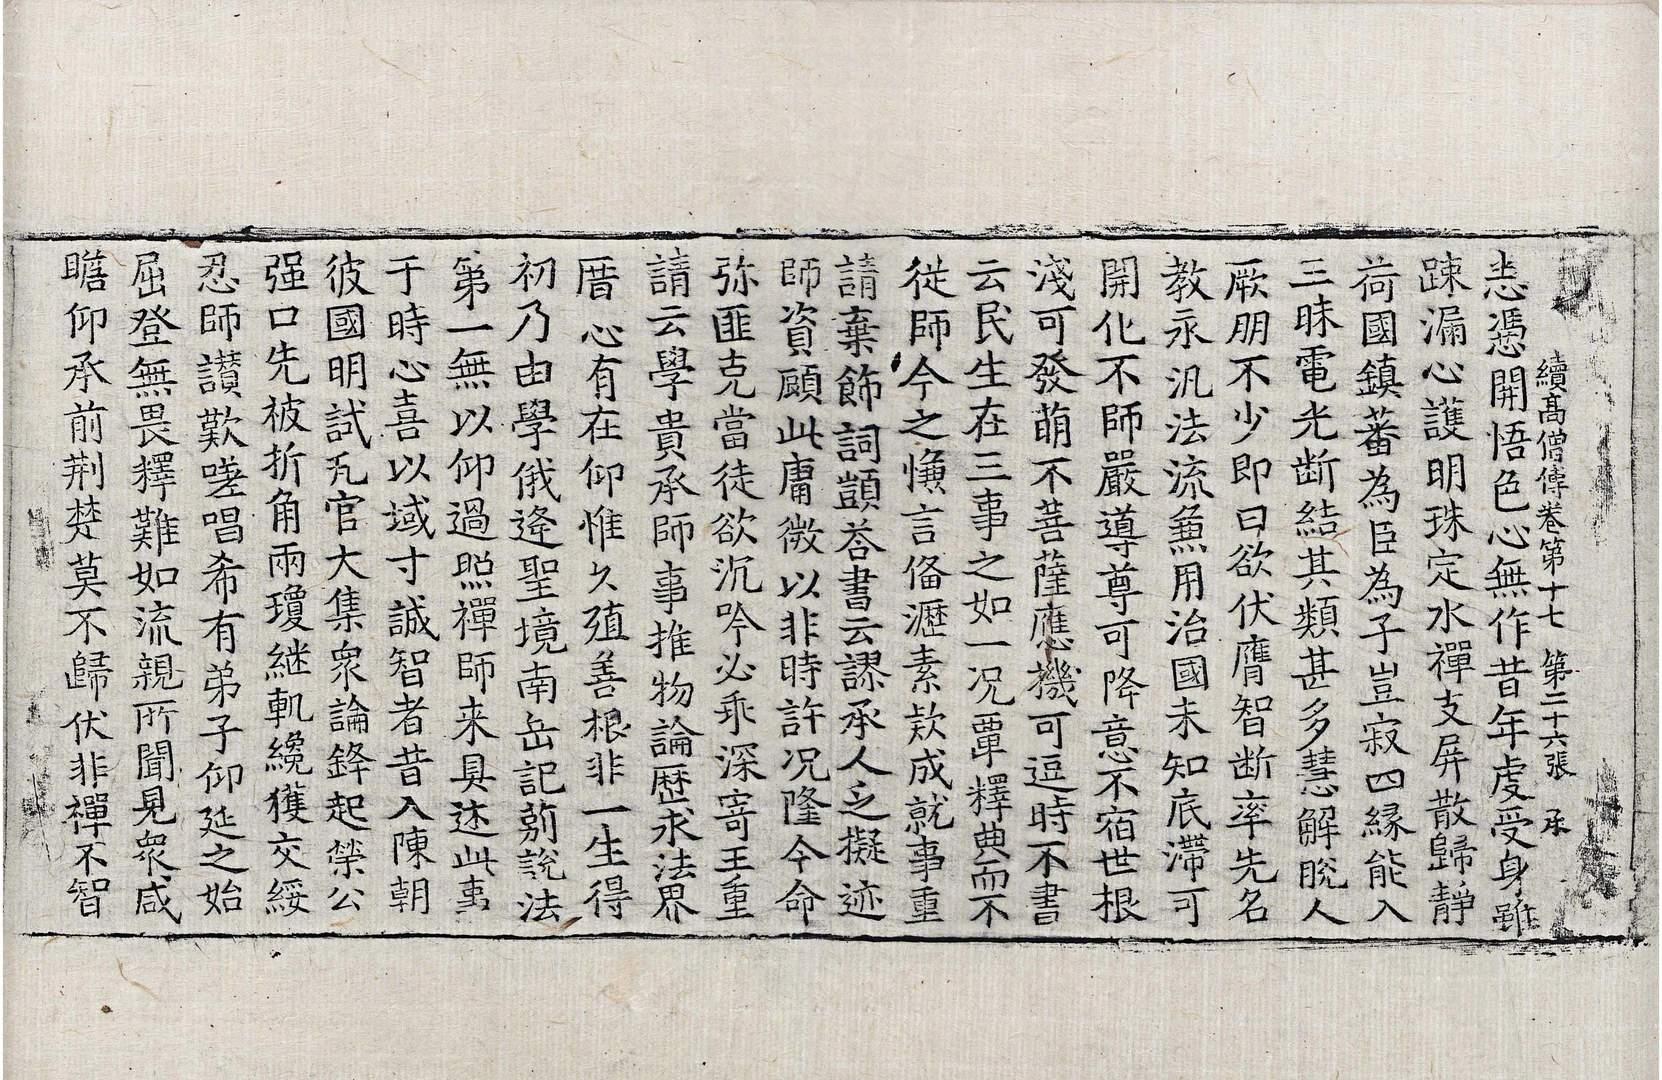 續髙僧傳卷第十七　第二十六張　承
恚憑開悟色心無作昔年虔受身雖
踈漏心護明珠定水禪支屏散歸靜
荷國鎮蕃為臣為子豈寂四緣能入
三昧電光断結其類甚多慧解脫人
厥朋不少即日欲伏膺智断率先名
教永汎法流兼用治國未知底滯可
開化不師嚴導尊可降意不宿世根
淺可發萌不菩薩應機可逗時不書
云民生在三事之如一况覃釋典而不
従師今之慊言俻瀝素欵成就事重
請棄飾詞顗荅書云謬承人乏擬迹
師資顧此庸微以非時許况隆今命
弥匪克當徒欲沉吟必乖深寄王重
請云學貴承師事推物論歷求法界
厝心有在仰惟久殖善根非一生得
初乃由學俄逢聖境南岳記莂說法
第一無以仰過照禪師来具述此事
于時心喜以域寸誠智者昔入陳朝
彼國明試瓦官大集衆論鋒起榮公
强口先被折角兩瓊継軌纔獲交綏
忍師讃歎嗟唱希有弟子仰延之始
屈登無畏釋難如流親所聞見衆咸
瞻仰承前荆楚莫不歸伏非禪不智